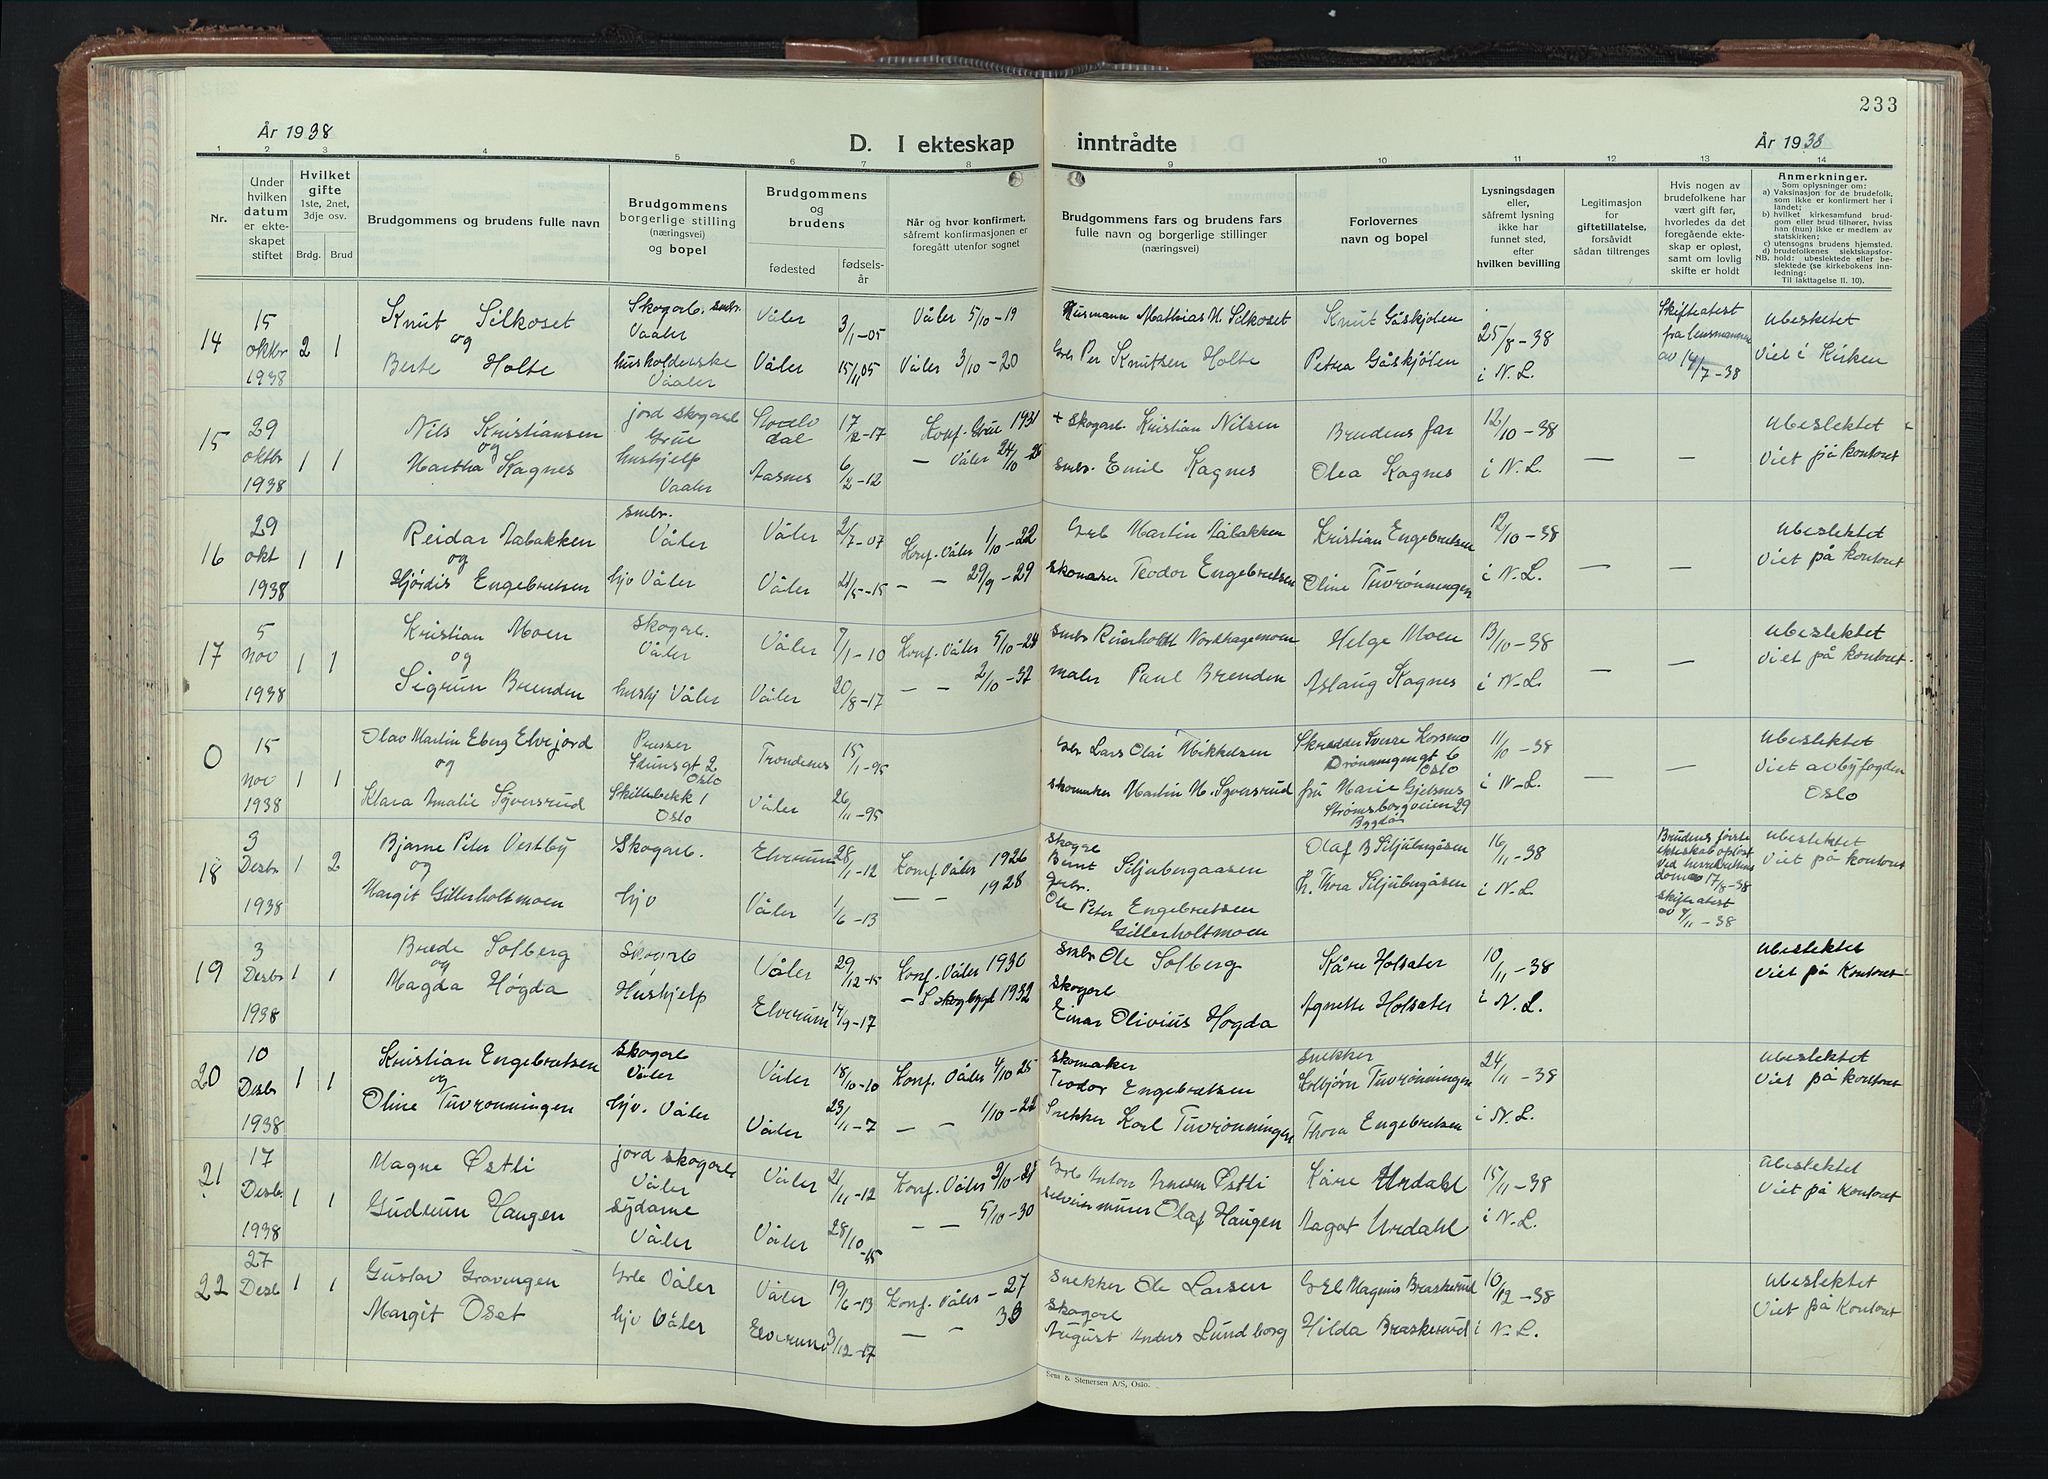 233
År 1938
D. I ekteskap inntrådte
År 1938
1 2 3 4 5 6 7 8 9 10 11 12 13 14
Nr.
Under hvilken datum er ekteskapet stiftet
Hvilket gifte 1ste, 2net, 3dje osv.
Brdg. Brud
Brudgommens og brudens fulle navn
Brudgommens borgerlige stilling (næringsvei) og bopel
Brudgommens og brudens
fødested
fødselsår
Når og hvor konfirmert, såfremt konfirmasjonen er foregått utenfor sognet
Brudgommens fars og brudens fars fulle navn og borgerlige stillinger (næringsvei)
Forlovernes navn og bopel
Lysningsdagen eller, såfremt lysning ikke har funnet sted, efter hvilken bevilling
Legitimasjon for giftetillatelse, forsåvidt sådan tiltrenges
Hvis nogen av brudefolkene har vært gift før, hvorledes da det foregående ekteskap er opløst, samt om lovlig skifte er holdt
Anmerkninger.
Som oplysninger om:
a) Vaksinasjon for de brudefolk, som ikke er konfirmert her i landet;
b) hvilket kirkesamfund brudgom eller brud tilhører, hvis han (hun) ikke er medlem av statskirken;
c) utensogns brudens hjemsted.
d) brudefolkenes slektskapsforhold: ubeslektede eller beslektede (se kirkebokens innledning:
NB. Til iakttagelse II. 10).
14 15 oktbr 1938 2 1
Knut Silkoset og Skogarb. smbr. Vaaler Våler 3/1-05 Våler 5/10-19 Husmann Mathias M. Silkoset Knut Gåskjølen 25/8-38 Skifteatest fra lensmannen av 14/7-38 Ubesketet
Berte Holte husholderske Vaaler Våler 15/11 05 Våler 3/10-20 Gbr Per Knutsen Holte Petrea Gåskjölen i N.L. Viet i Kirken
15 29 oktbr 1938 1 1
Nils Kristiansen og jord skogarb Grue 17/2-17 Konf. Grue 1931 + Skogarb. Kristian Nilsen Brudens far 12/10-38 Ubeslektet
Martha Kagnes hushjelp Vaaler Aasnes 6/2-12 — Våler 24/10-26 Smbr. Emil Kagnes Olea Kagnes i N.L. — — Viet på kontoret
16 29 okt 1938 1 1
Reidar Aabakken og smbr. Våler Våler 2/7-07 Konf. Våler 1/10-22 Gbr Martin Aabakken Kristian Engebretsen 12/10-38 Ubeslektet
Hjördis Engebretsen hjv Våler Våler 21/5-15 — — 29/9-29 Skomaker Teodor Engebretsen Oline Tuvrönningen i N.L. — — Viet på kontoret
17 5 nov 1938 1 1
Kristian Moen og skogarb. Våler Våler 7/1-10 Konf. Våler 5/10-24 Smbr Reinholdt Nordhagemoen Helge Moen 13/10-38 Ubeslektet
Sigrun Brenden hushj Våler Våler 20/8-17 — — 2/10-32 Maler Paul Brenden Aslaug Kagnes i N.L. — — Viet på kontoret.
0 15 nov 1938 1 1
Olav Martin Eberg Elvejord og Presser Idunsgt 2 Oslo Trondenes 15/1-95 Gbr Lars Olai Mikkelsen Skredder Sverre Korsmo Dronningengt 6 Oslo 11/10-38 Ubeslektet
Klara Amalie Syversrud Skillebekk 1 Oslo Våler 26/11-95 Skomaker Martin M. Syversrud fru Marie Gjelsnes Strømsborgveien 29 Bygdö i N.L. — — Viet av byfogden Oslo
18 3 Desbr 1938 1 2
Bjarne Peter Vestby og Skogarb. Elverum 28/1-12 Konf. Våler 1926 Skogrb Bernt Siljubergaasen Olaf B Siljubergåsen 16/11-38 Brudens første ekteskab opløst ved herredsrettens dom av 17/8-38 Skifteatest av 9/11-38 Ubeslektet
Margit Gillerholtmoen hjv Våler 1/6-13 — — 1928 Gbr. Ole Peter Engebretsen Gillerholtmoen K. Thora Siljubergåsen i N.L. Viet på kontoret
19 3 Desbr 1938 1 1
Brede Solberg og Skogarb Våler 29/12-15 Konf. Våler 1930 Smbr Ole Solberg Kåre Holsater 10/11-38 Ubeslektet
Magda Högda Hushjelp Elverum 14/9-17 — S. skogbygd 1932 Skogarb Einar Olivius Högda Agnette Holsater i N.L. Viet på Kontoret
20 10 Desbr 1938 1 1
Kristian Engebretsen og Skogarb Våler Våler 18/10-10 Konf. Våler 4/10-25 Skomaker Teodor Engebretsen Snekker Kolbjørn Tuvrönningen 24/11-38 Ubeslektet
Oline Tuvrønningen hjv. Våler Våler 23/11-7 — — 1/10-22 Snekker Karl Tuvrønningen Thora Engebretsen i N.L. Viet på kontoret
21 17 Desbr. 1938 1 1
Magne Østli jord skogarb Våler Våler 21/11-12 Konf. Våler 2/10-28 Grb Anton Østli Kåre Urdahl 15/11-38 Ubeslektet
Gudrun Haugen Sydame Våler Våler 28/10-15 — — 5/10-30 murer Olaf Haugen Aagot Urdahl i N.L. Viet på Kontoret
22 27 Desb 1 1
Gustav Gravingen Våler Våler 19/6-13 Konf. Våler -27 Snekker Ole Larsen Grb Magnus Braskerud 10/12-38 Ubeslektet
Margit Oset hjv Våler Elverum 3/12-17 — — 30 Skogarb August Anders Lundborg Hilda Braskerud i N.L. Viet på Kontoret
Sem & Stenersen A/S, Oslo.